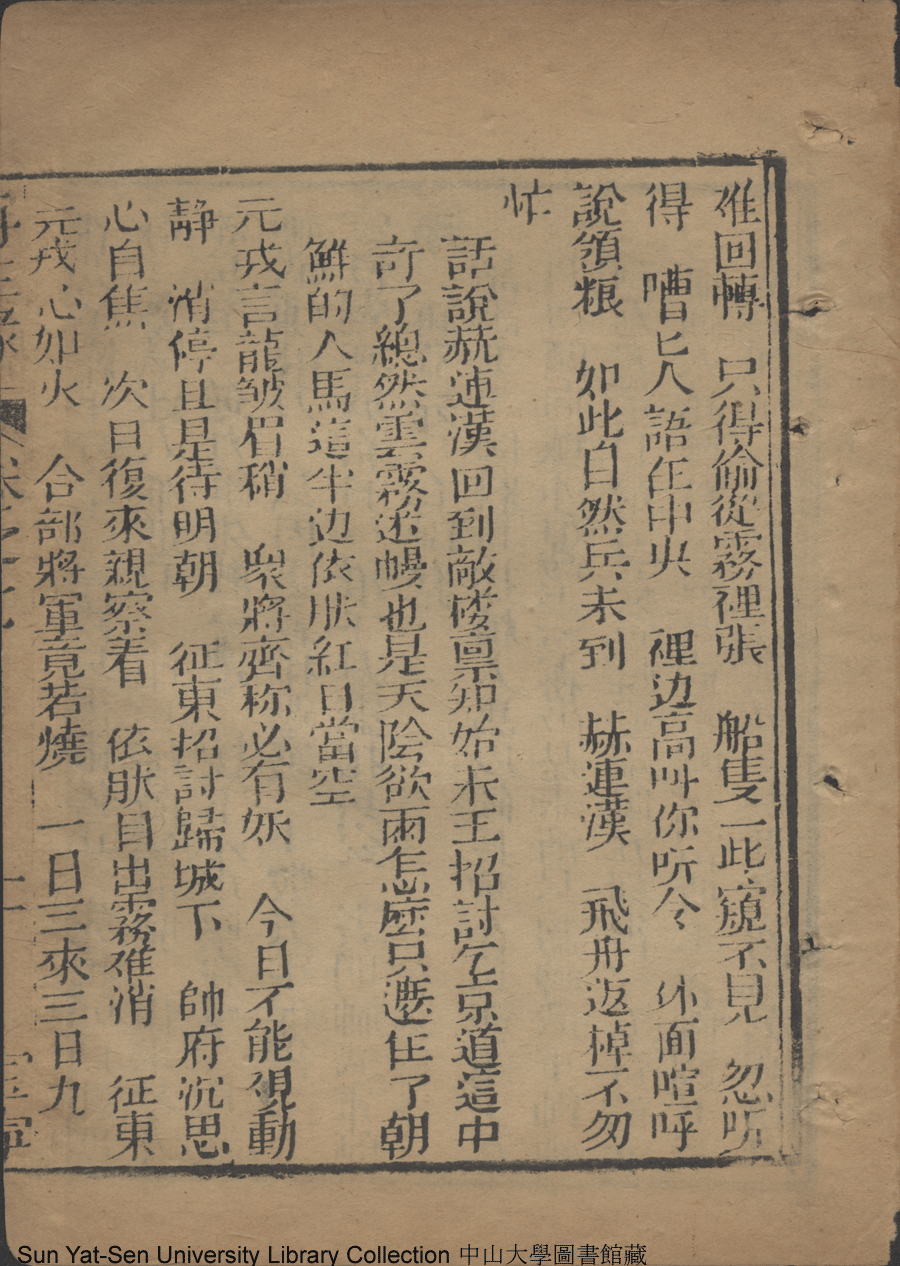 难回轉　只得偷從霧裡張　船隻一此窺不見　忽听
得　嘈ヒ人語在中央　裡边高叫你听令　外面喧呼
說領粮　如此自然兵未到　赫連漢　飛舟返棹不匆
忙
話說赫連漢回到敵楼禀知始末王招討乞京道這中
奇了總然雲霧迷幔也是天陰欲雨怎麽只遮住了朝
鮮的人馬這半边依旧紅日當空
元戎言龍皱眉稍　衆將齊称必有妖　今日不能覌動
静　消停且是待明朝　征東招討歸城下　帥府沉思
心自焦　次日復來親察看　依旧日出霧难消　征東
元戎心如火　合部將軍竟若燒　一日三來三日九
Sun Yat-Sen University Library Collection 中山大學圖書館藏